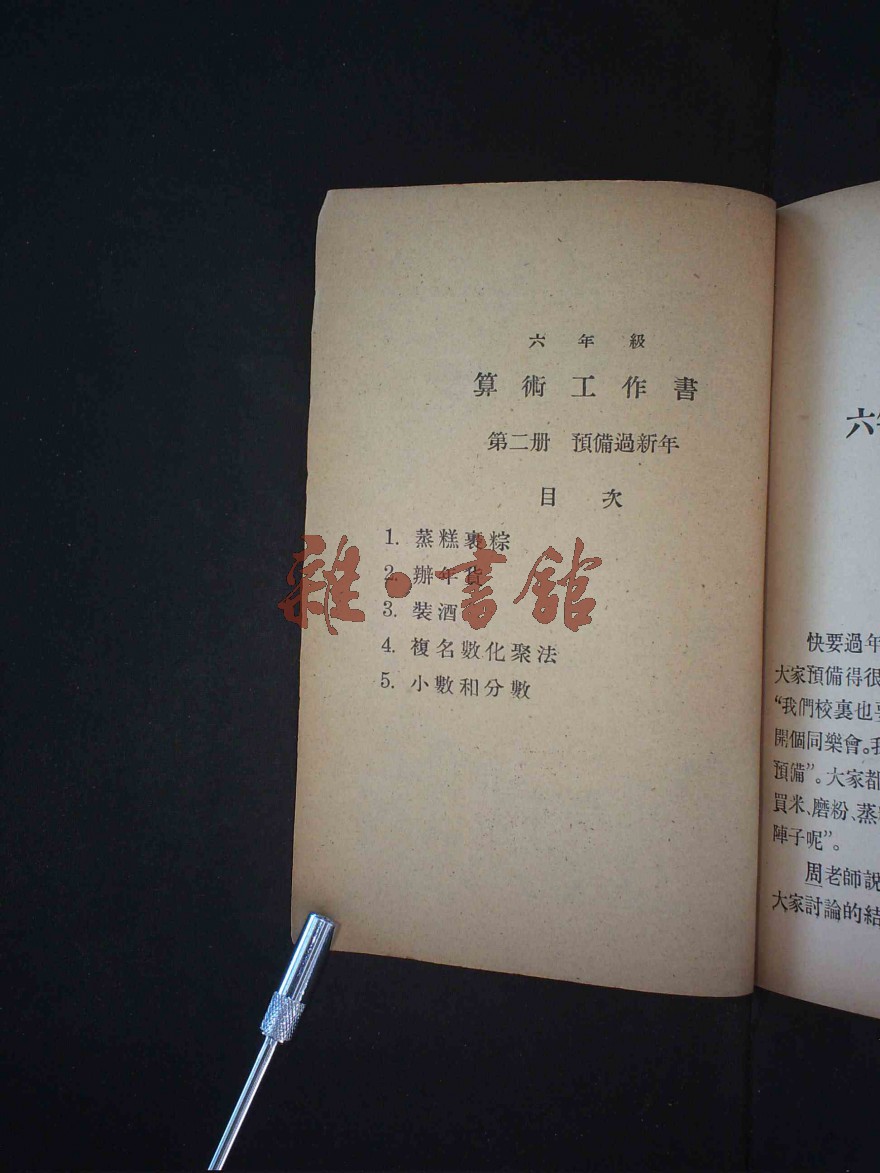 六年級
算術工作書
第二册 預備過新年
目次
1. 蒸糕裹粽
2. 辦年貨
3. 裝酒
4. 複名數化聚法
5. 小數和分數
雜·書館
六年
快要過年
大家預備得很
“我們校裏也要
開個同樂會。我
預備”。大家都
買米、磨粉、蒸
陣子呢”。
周老師説
大家討論的結